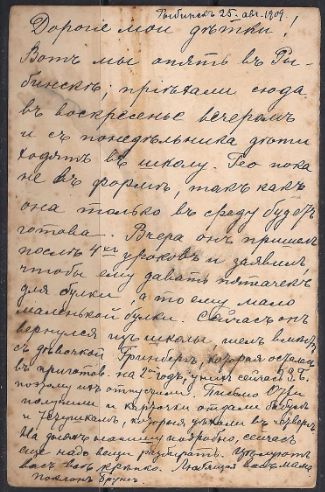 Рыбинскъ 25. авг. 1909.
Дорогіе мои дѣтки!
Вотъ мы опять въ Ры-
бинскѣ; пріѣхали сюда
въ воскресенье вечеромъ
и съ понедѣльника дѣти
ходятъ въ школу. Гео пока
не въ формѣ, такъ какъ
она только въ среду будетъ
готова. Вчера онъ пришелъ
послѣ 4хъ уроковъ и заявилъ,
чтобы ему давать пятачекъ
для булки, а то ему мало
маленькой булки. Сейчасъ онъ
вернулся изъ школы, шелъ вмѣстѣ
съ дѣвочкой Гринбергъ, которая осталась
въ приготов. на 2й годъ; у нихъ сейчасъ
поэтому ихъ отпустили. Письмо
получили и карточки отдали
и которыя уѣхали въ четвергъ.
На дняхъ напишу подробно, сейчасъ
еще надо вещи разбирать. Цѣлуютъ
васъ всѣ крѣпко. Любящая васъ мама
Поклонъ